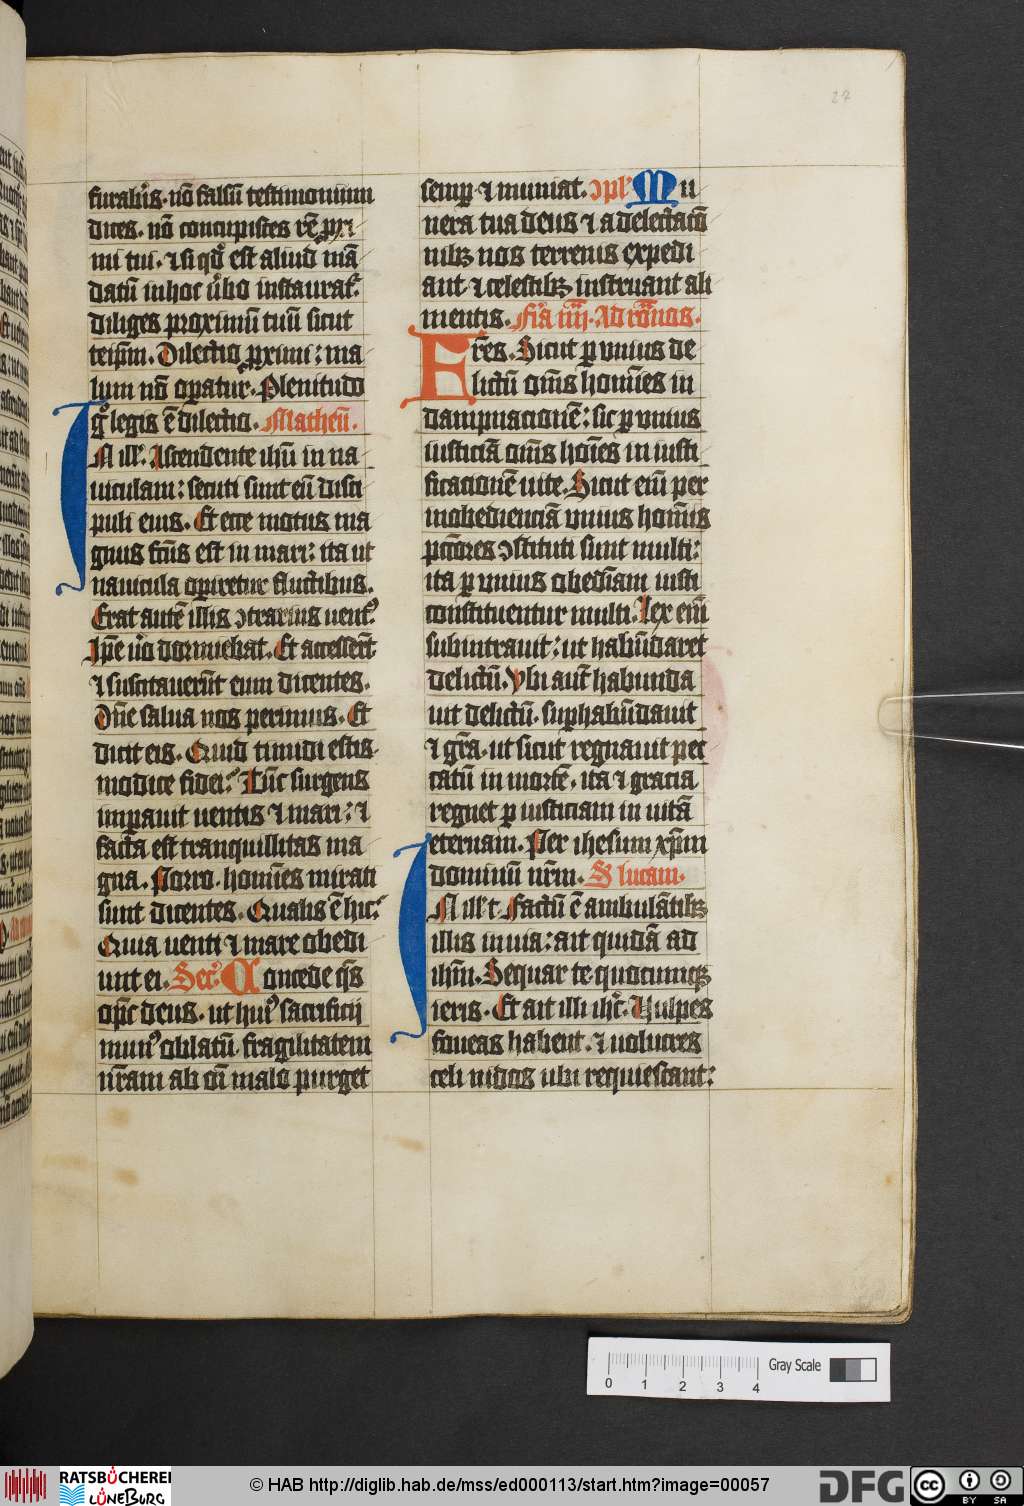 27
furab'is. nō falsū testimonium
dices. nō concupisces rē pxi
mi tui. ⁊ si qd' est aliud mā
datū in hoc ůbo instaurat'.
diliges proximū tuū sicut
teip̄m. Dilectio pximi: ma
lum nō opatur. Plenitudo
g° legis ē dilectio. Matheū.
IN ill'. Ascendente ihū in na
uiculam: secuti sunt eū disci
puli eius. Et ecce motus ma
gnus fc̄us est in mari: ita ut
nauicula opiretur fluctibus.
Erat autē illis ↄtrarius uent'.
Ip̄e ůo dormiebat. Et accesserūt
⁊ suscitauerūt eum dicentes.
Dn̄e salua nos perimus. Et
dicit eis. Quid timidi estis
modice fidei: Tūc surgens
impauit uentis ⁊ mari: ⁊
facta est tranquillitas ma
gna. Porro. homīes mirati
sunt dicentes. Qualis ē hic:
Quia uenti ⁊ mare obedi
unt ei. Secr' Concede q̄s
op̄c deus. ut hui' sacrificij
mun' oblatū. fragilitatem
nr̄am ab oī malo purget
semp ⁊ muniat. ↄpl' Mu
nera tua deus ⁊ a delectacō
nib; nos terrenis expedi
ant ⁊ celestib; instruant ali
mentis. Fr̄ia iiij. Ad rōanos.
Fr̄es. Sicut p unius de
lictū om̄s homīes in
dampnacionē: sic p unius
iusticiā om̄s hoīes in iusti
ficacionē uite. Sicut eī per
inobedienciā unius homīs
pctōres ↄstituti sunt multi:
ita p unius obed'iam iusti
constituentur multi. Lex eī
subintrauit: ut habūdaret
delictū. Vbi aut̄ habunda
uit delictū. suphabūdauit
⁊ gr̄a. ut sicut regnauit pec
catū in mortē. ita ⁊ gracia
regnet p iusticiam in uitā
eternam. Per ihesum xp̄m
dominū nr̄m. S lucam.
IN ill' t. Factū ē ambulātib;
illis in uia: ait quidā ad
ihm̄. Sequar te quocumq;
ieris. Et ait illi ihc̄. Vulpes
foueas habent. ⁊ uolucres
celi nidos ubi requiescant:
0 1 2 3 4 Gray Scale
RATSBÜCHEREI
LÜNEBURG
© HAB http://diglib.hab.de/mss/ed000113/start.htm?image=00057
DFG
cc BY SA